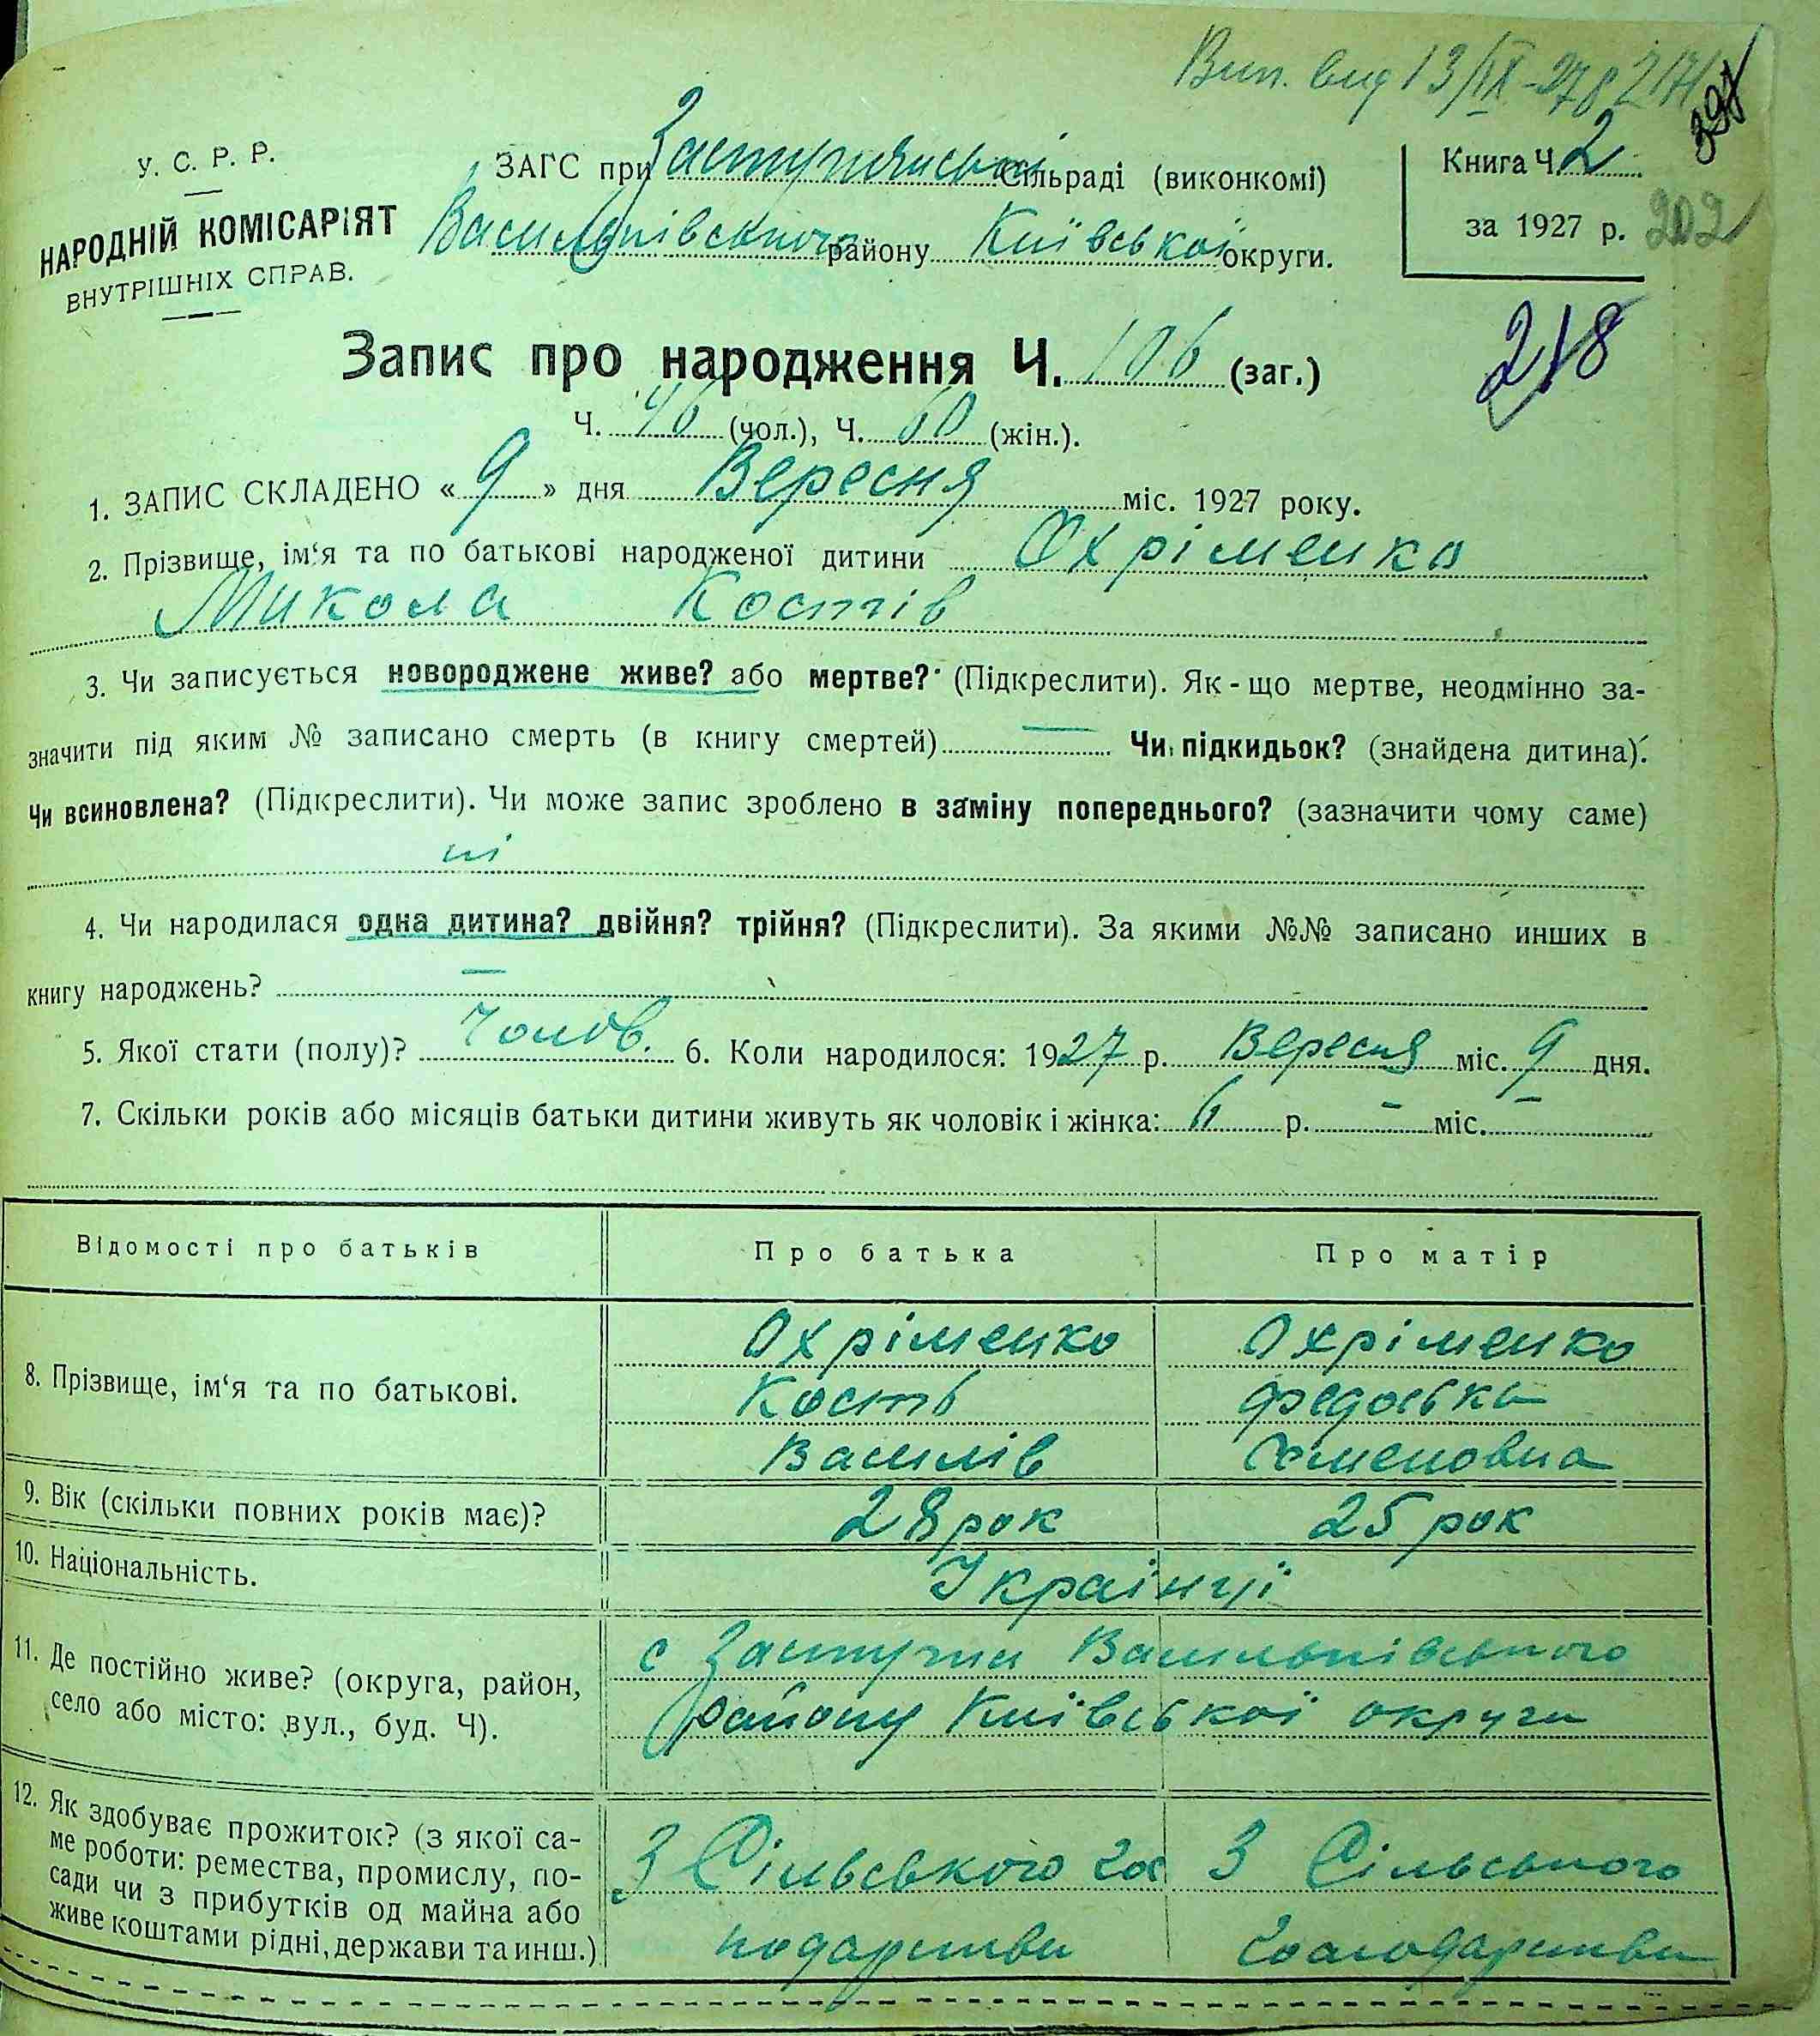 Вип. вид 13/IX-27р
397
У. С. Р. Р.
НАРОДНІЙ КОМІСАРІЯТ
ВНУТРІШНІХ СПРАВ.
ЗАГС при Застугнянській Сільраді (виконкомі)
Васильківського району Київської округи.
Книга Ч. 2
за 1927 р.
202
218
Запис про народження Ч. 106 (заг.)
Ч. 46 (чол.), Ч. 60 (жін.).
1. ЗАПИС СКЛАДЕНО « 9 » дня Вересня міс. 1927 року.
2. Прізвище, ім‘я та по батькові народженої дитини Охріменко
Микола Костів
3. Чи записується новороджене живе? або мертве? (Підкреслити). Як-що мертве, неодмінно за-
значити під яким № записано смерть (в книгу смертей) — Чи підкидьок? (знайдена дитина).
Чи всиновлена? (Підкреслити). Чи може запис зроблено в заміну попереднього? (зазначити чому саме)
ні
4. Чи народилася одна дитина? двійня? трійня? (Підкреслити). За якими №№ записано инших в
книгу народжень? —
5. Якої стати (полу)? Чолов. 6. Коли народилося: 1927 р. Вересня міс. 9 дня.
7. Скільки років або місяців батьки дитини живуть як чоловік і жінка: 6 р. - міс. -
Відомості про батьків Про батька Про матір
8. Прізвище, ім‘я та по батькові. Охріменко Охріменко
Кость Федоська
Василів Хменовна
9. Вік (скільки повних років має)? 28 рок 25 рок
10. Національність. Українці
11. Де постійно живе? (округа, район,
село або місто: вул., буд. Ч).
с Застугна Васильківського
району Київської округи
12. Як здобуває прожиток? (з якої са-
ме роботи: ремества, промислу, по-
сади чи з прибутків од майна або
живе коштами рідні, держави та инш.)
З Сільського гос
подарства
З Сільського
Господарства